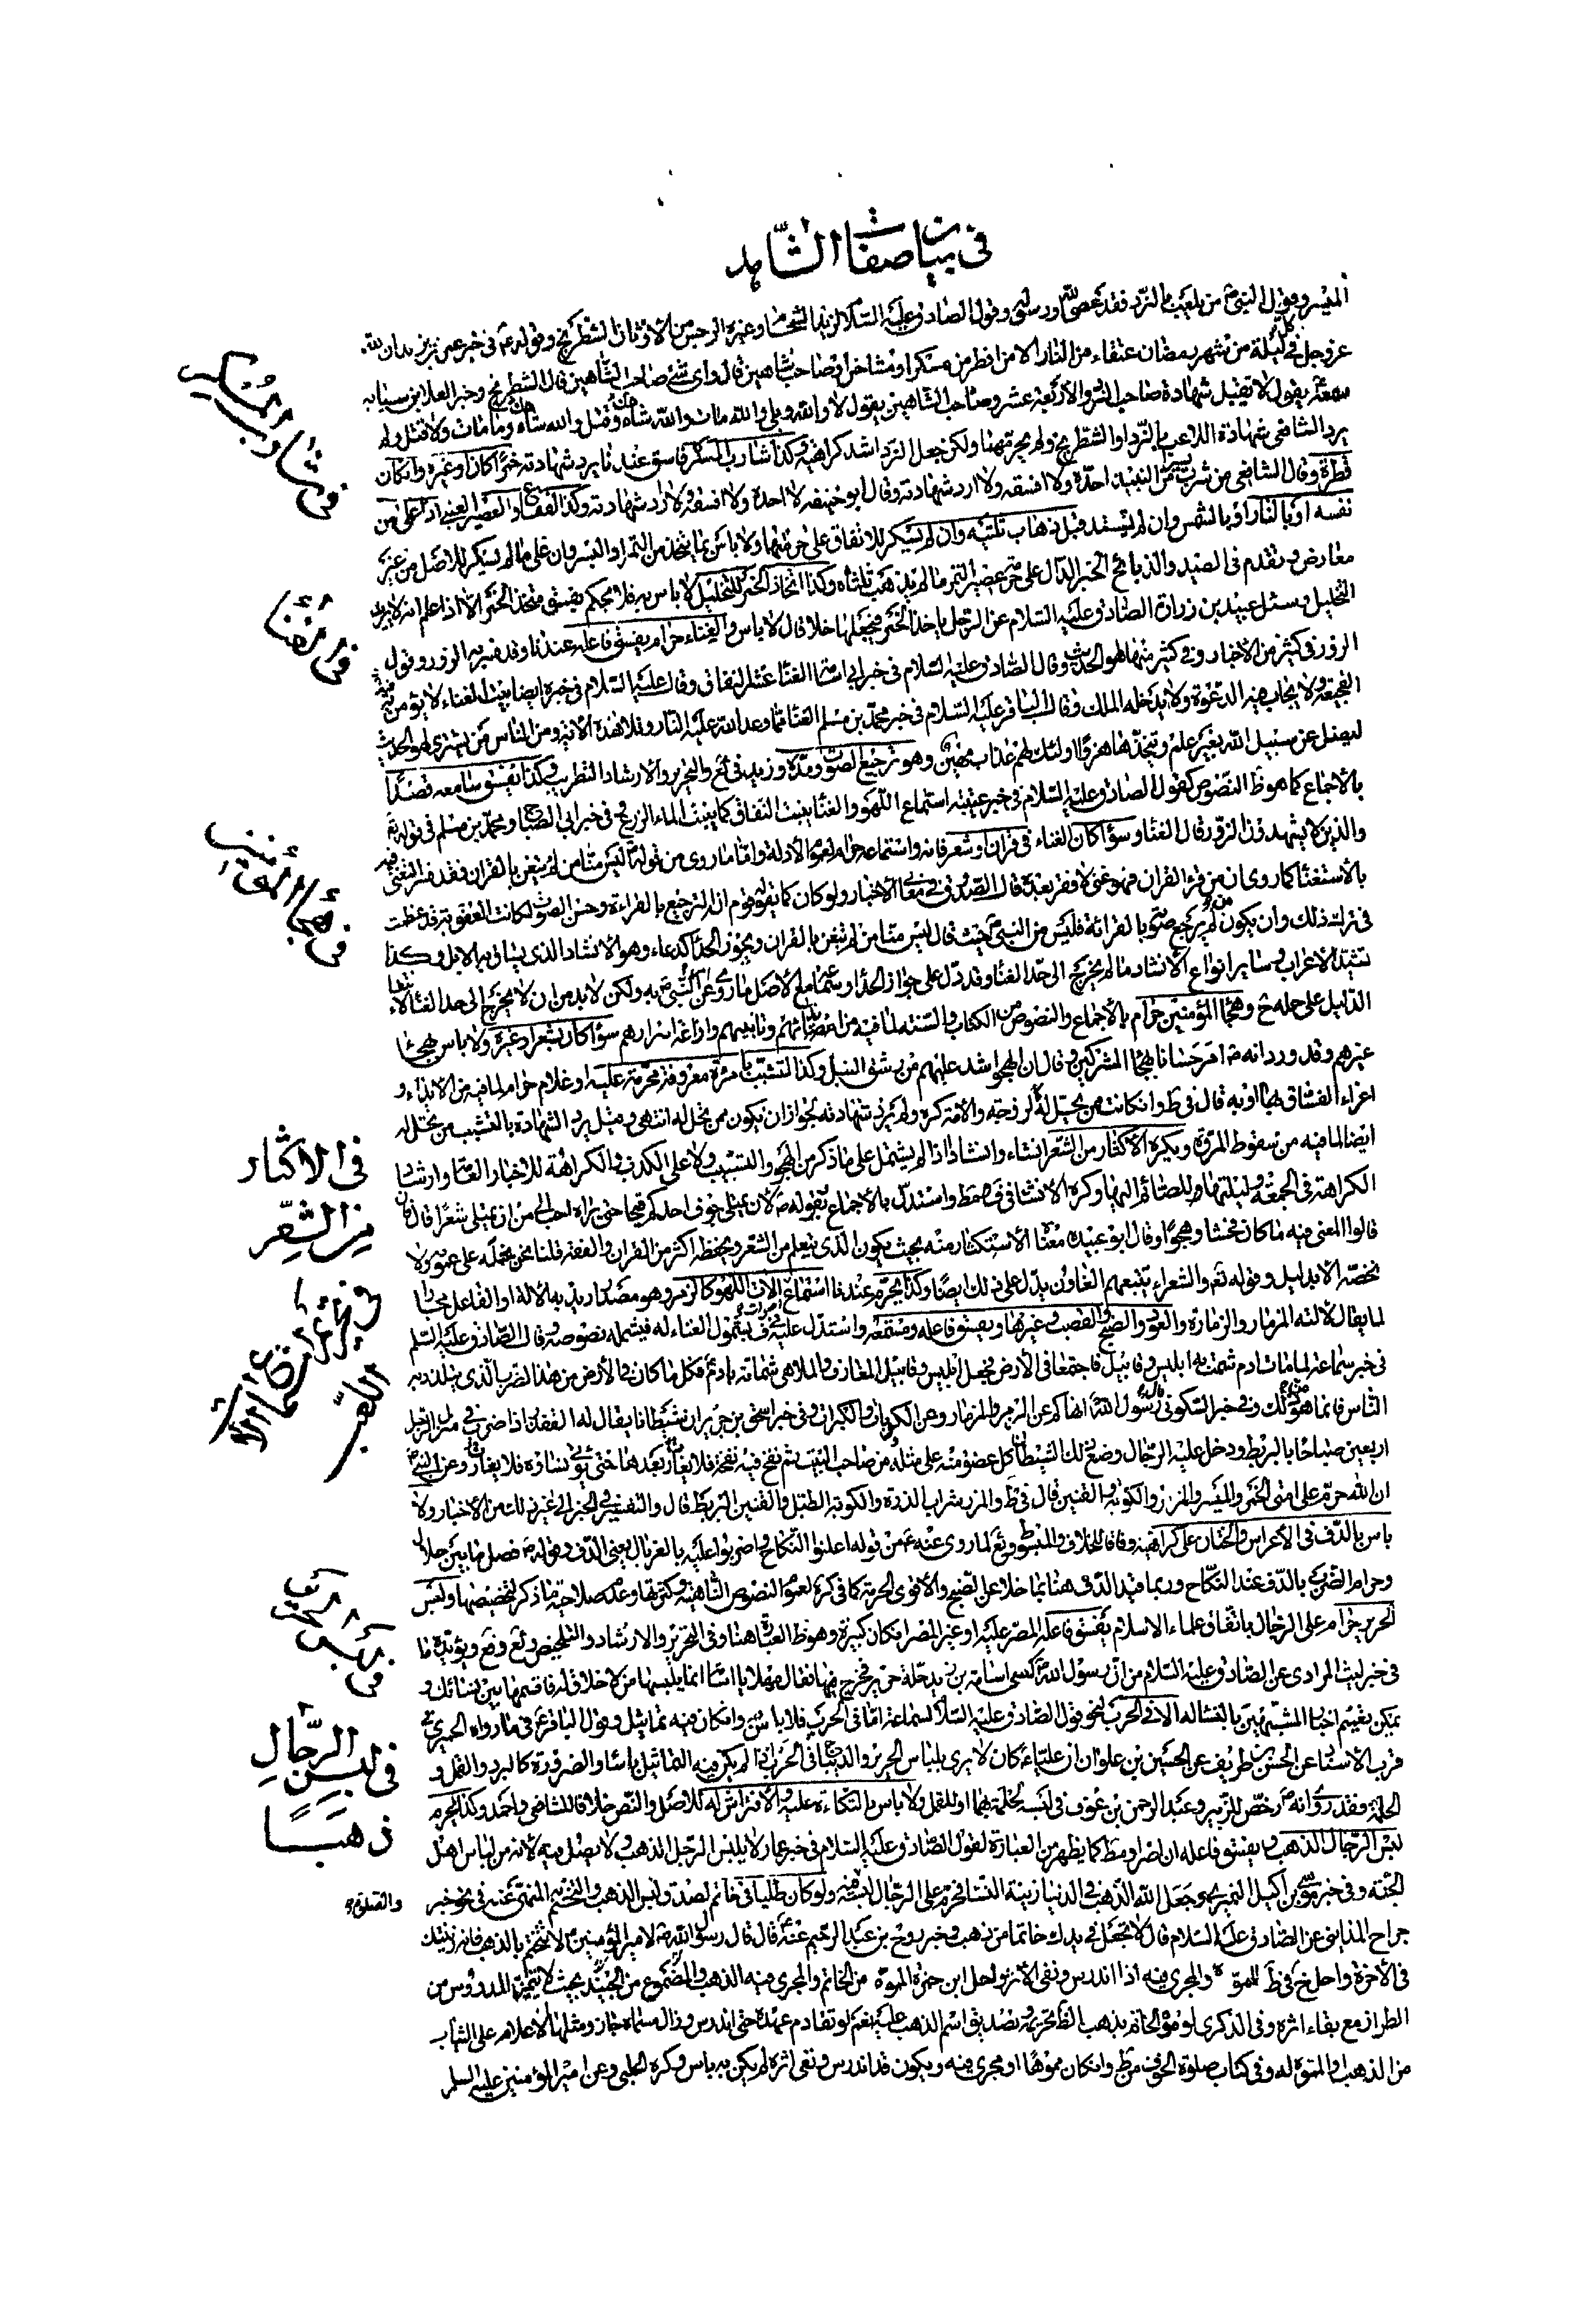 في بيان صفات الشاهد
الميسر وقول النبي ص من يلعب بالنرد فقد عصى الله ورسوله وقول الصادق عليه السلام لزيد الشحام وغيره الرجس من الاوثان الشطرنج وقوله ع في خبر عمر بن يزيد ان لله
عز وجل في كل ليلة من شهر رمضان عتقاء من النار الا من افطر على مسكر او مشاحن او صاحب شاهين قال واي شيء صاحب الشاهين قال الشطرنج وخبر العلا بن سيابه
سمعته يقول لا تقبل شهادة صاحب النرد والاربعة عشر وصاحب الشاهين يقول لا والله وبلى والله مات والله شاه وقتل والله شاه وما مات ولا قتل ولم
يرد الشافعي شهادة اللاعب بالنرد او الشطرنج ولم يحرمهما ولكن جعل النرد اشد كراهية وكذا شارب المسكر فاسق عندنا يرد شهادته خمرا كان او غيره وان كان
قطرة وقال الشافعي من شرب يسيرا من النبيذ احده ولا افسقه ولا ارد شهادته وقال ابو حنيفه لا احده ولا افسقه ولا ارد شهادته وكذا الفقاع والعصير العنبي اذا غلى من
نفسه او بالنار او بالشمس وان لم يشتد قبل ذهاب ثلثيه وان لم يسكر للاتفاق على حرمتها ولا باس بما يتخذ من التمر او البسر وان غلى ما لم يسكر للاصل من غير
معارض وتقدم في الصيد والذبايح الخبر الدال على حرمة عصير التمر ما لم يذهب ثلثاه وكذا اتخاذ الخمر للتخليل لا باس به فلا يحكم بفسق متخذ الخمر الا اذا علم انه لا يريد
التخليل وسئل عبيد بن زرارة الصادق عليه السلام عن الرجل ياخذ الخمر فيجعلها خلا قال لا باس والغناء حرام يفسق فاعله عندنا وقد فسر به الزور وقول
الزور في كثير من الاخبار وفي كثير منها لهو الحديث وقال الصادق عليه السلام في خبر ابي اسامة الغناء عش النفاق وقال عليه السلام في خبره ايضا بيت الغناء لا يؤمن فيه
الفجيعة ولا يجاب فيه الدعوة ولا يدخله الملك وقال الباقر عليه السلام في خبر محمد بن مسلم الغناء مما وعد الله عليه النار وتلا هذه الاية ومن الناس من يشتري لهو الحديث
ليضل عن سبيل الله بغير علم ويتخذها هزوا اولئك لهم عذاب مهين وهو ترجيع الصوت ومده وزيد في ئع والتحرير والارشاد التطريب وكذا يفسق سامعه قصدا
بالاجماع كما هو ظ النصوص كقول الصادق عليه السلام في خبر عنبسة استماع اللهو والغناء ينبت النفاق كما ينبت الماء الزرع وفي خبر ابي الصباح ومحمد بن مسلم في قوله تع
والذين لا يشهدون الزور قال الغناء وسواء كان الغناء في قران او شعر فانه واستماعه حرام لعموم الادلة واما ما روي من قوله ص ليس منا من لم يتغن بالقران فقد فسر التغني فيه
بالاستغناء كما روي ان من قرا القران فهو غني لا فقر بعده قال الصدوق في معاني الاخبار ولو كان كما يقوله قوم انه الترجيع بالقراءة وحسن الصوت لكانت العقوبة قد عظمت
في ترك ذلك وان يكون من لم يرجع صوته بالقراءة فليس من النبي ص حيث قال ليس منا من لم يتغن بالقران ويجوز الحداء كدعاء وهو الانشاد الذي يساق به الابل وكذا
نشيد الاعراب وساير انواع الانشاد ما لم يخرج الى حد الغناء وقد دل على جواز الحداء وسماعه مع الاصل ما روي عن النبي ص به ولكن لا بد من ان لا يخرج الى حد الغناء لانتفاء
الدليل على حله ح وهجاء المؤمنين حرام بالاجماع والنصوص من الكتاب والسنة لما فيه من ايذائهم وتانيبهم واذاعة اسرارهم سواء كان بشعر او غيره ولا باس بهجاء
غيرهم وقد ورد انه ص امر حسانا بهجاء المشركين وقال ان الهجو اشد عليهم من رشق النبل وكذا التشبيب بامرأة معروفة محرمة عليه او غلام حرام لما فيه من الايذاء و
اغراء الفساق بها او به قال في ط وان كانت ممن يحل له كزوجته والامة كره ولم يرد شهادته لجواز ان يكون ممن يحل له انتهى وقيل يرد الشهادة بالتشبيب بمن يحل له
ايضا لما فيه من سقوط المروة ويكره الاكثار من الشعر انشاء وانشادا اذا لم يشتمل على ما ذكر من الهجو والتشبيب ولا على الكذب والكراهة للاخبار العامة وارشاد
الكراهة في الجمعة وليلتها وللصائم اليها وكره الانشاء في ط واستدل بالاجماع بقوله ص لان يمتلي جوف احدكم قيحا حتى يراه احب الي من ان يمتلي شعرا قال فان
قالوا المعنى فيه ما كان فحشا وهجوا وقال ابو عبيدة معناه الاستكثار منه بحيث يكون الذي يتعلم من الشعر ويحفظه اكثر من القران والفقه قلنا نحن نحمله على عمومه ولا
نخصه الا بدليل وقوله تع والشعراء يتبعهم الغاون يدل على ذلك ايضا وكذا يحرم عندنا استماع الات اللهو كالزمر وهو مصدر اريد به الالة او الفاعل مجازا
لما يقال لالته المزمار والزمارة والعود والصنج والقصب وغيرها ويفسق فاعله ومستمعه واستدل عليه في ف بشمول الغناء له فيشمله نصوصه وقال الصادق عليه السلم
في خبر سماعة لما مات ادم شمت به ابليس وقابيل فاجتمعا في الارض فجعل ابليس وقابيل المعازف والملاهي شماتة بادم فكل ما كان في الارض من هذا الضرب الذي يتلذذ به
الناس فانما هو من ذلك وفي خبر السكوني قال رسول الله ص انهاكم عن الزمر والمزمار وعن الكوبات والكبرات وفي خبر اسحق بن جرير ان شيطانا يقال له القفندر اذا ضرب في منزل الرجل
اربعين صباحا بالبربط ودخل عليه الرجال وضع ذلك الشيطان كل عضو منه على مثله من صاحب البيت ثم نفخ فيه نفخة فلا يغار بعدها حتى تؤتى نساؤه فلا يغار وعن النبي ص
ان الله حرم على امتي الخمر والميسر والمزر والكوبة والقنين قال في ط والمزر شراب الذرة والكوبة الطبل والقنين البربط قال والتفسير في الخبر الى غير ذلك من الاخبار ولا
باس بالدف في الاعراس والختان على كراهية وفاقا للخلاف والمبسوط وئع لما روي عنه ص من قوله اعلنوا النكاح واضربوا عليه بالغربال يعني الدف وقوله ص فصل ما بين حلال
وحرام الضرب بالدف عند النكاح وربما قيد الدف هنا بما خلا عن الصنج والاقوى الحرمة كما في كره لعموم النصوص الناهية وكثرتها وعدم صلاحية ما ذكر لتخصيصها ولبس
الحرير حرام على الرجال باتفاق علماء الاسلام يفسق فاعله المصر عليه او غير المصر ان كان كبيرة وهو ظ العبارة هنا وفي التحرير والارشاد والتلخيص وئع وفع ويؤيده ما
في خبر ليث المرادي عن الصادق عليه السلام من ان رسول الله ص كسى اسامة بن زيد حلة حرير فخرج فيها فقال مهلا يا اسامة انما يلبسها من لا خلاق له فاقسمها بين نسائك و
يمكن تعميم اخبار المتشبهين بالنساء له الا في الحرب لنحو قول الصادق عليه السلام لسماعة اما في الحرب فلا باس به وان كان فيه تماثيل وقول الباقر ع في ما رواه الحميري في
قرب الاسناد عن الحسن بن ظريف عن الحسين بن علوان ان عليا ع كان لا يرى بلباس الحرير والديباج في الحرب اذا لم يكن فيه التماثيل باسا والضرورة كالبرد والقمل و
الحكة فقد روي انه ص رخص للزبير وعبد الرحمن بن عوف في لبسه لحكة بهما او للقمل ولا باس بالتكاة عليه والافتراش له للاصل والنص خلافا للشافعي واحمد وكذا يحرم
لبس الرجال الذهب ويفسق فاعله ان اصر او مط كما يظهر من العبارة لقول الصادق عليه السلام في خبر عمار لا يلبس الرجل الذهب ولا يصلي فيه لانه من لباس اهل
الجنة وفي خبر موسى بن اكيل النميري جعل الله الذهب في الدنيا زينة النساء فحرم على الرجال لبسه والصلوة فيه ولو كان طليا في خاتم لصدق لبس الذهب والتختم المنهي عنه في نحو خبر
جراح المدايني عن الصادق عليه السلام قال لا تجعل في يدك خاتما من ذهب وخبر روح بن عبد الرحيم عنه ع قال قال رسول الله ص لامير المؤمنين ع لا تختم بالذهب فانه زينتك
في الاخرة واحل في ط المموه والمجرى فيه اذا اندرس وبقي الاثر ولعل ابن حمزة المموه من الخاتم والمجرى فيه الذهب والمصنوع من الجنسين بحيث لا يتميز والمدروس من
الطراز مع بقاء اثره وفي الذكرى لو موه الخاتم بذهب الظ تحريمه لصدق اسم الذهب عليه نعم لو تقادم عهده حتى اندرس وزال مسماه جاز ومثله الاعلام على الثياب
من الذهب او المموه له وفي كتاب صلوة الخوف من ط وان كان مموها او مجرى فيه ويكون قد اندرس وبقي اثره لم يكن به باس وكره الحلبي وعن امير المؤمنين عليه السلم
في شارب المسكر
في الغناء
في هجاء المؤمنين
في الاكثار
من الشعر
في تحريم استماع الات
اللهو
في لبس الحرير
في لبس الرجال
ذهبا
والصلوة